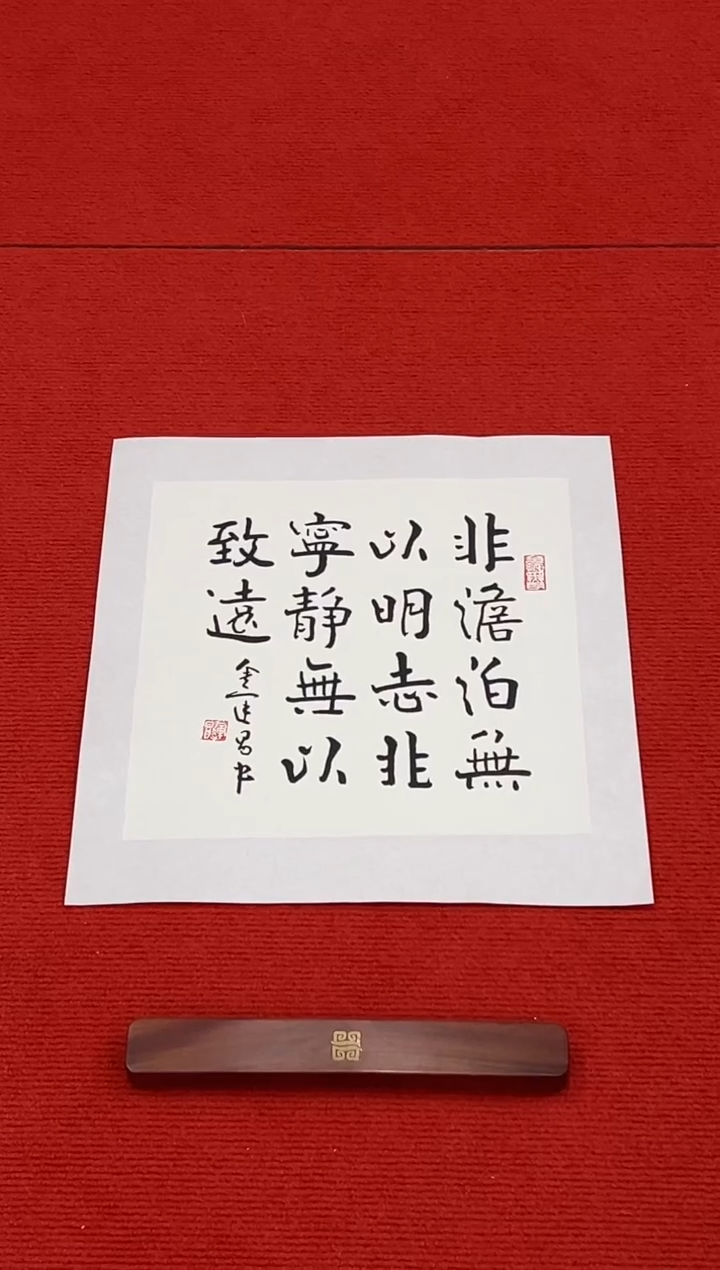 非澹泊無
以明志非
寧靜無以
致遠
建昌书